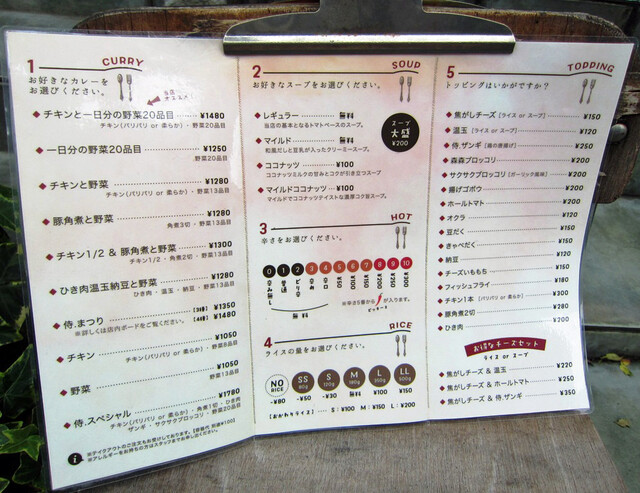 1 CURRY
お好きなカレーを
お選びください。
当店
オススメ!
◆チキンと一日分の野菜20品目 ¥1480
チキン(パリパリ or 柔らか)・野菜20品目
◆一日分の野菜20品目 ¥1250
野菜20品目
◆チキンと野菜 ¥1280
チキン(パリパリ or 柔らか)・野菜13品目
◆豚角煮と野菜 ¥1280
角煮3切・野菜13品目
◆チキン1/2 & 豚角煮と野菜 ¥1300
チキン1/2・角煮2切・野菜13品目
◆ひき肉温玉納豆と野菜 ¥1280
ひき肉・温玉・納豆・野菜13品目
◆侍.まつり 【3種】 ¥1350
※詳しくは店内ボードをご覧ください。 【4種】 ¥1480
◆チキン ¥1050
チキン(パリパリ or 柔らか)・野菜8品目
◆野菜 ¥1050
野菜13品目
◆侍.スペシャル ¥1780
チキン(パリパリ or 柔らか)・角煮1切・ひき肉
ザンギ・サクサクブロッコリー・野菜20品目
※テイクアウトのご注文もお受けしております。【容器代 別途¥100】
※アレルギーをお持ちの方はスタッフまでお申し出ください。
2 SOUP
お好きなスープをお選びください。
◆レギュラー 無料
当店の基本となるトマトベースのスープ。
◆マイルド 無料
和風だしと豆乳が入ったクリーミースープ。
◆ココナッツ ¥100
ココナッツミルクの甘みとコクが引き立つスープ
◆マイルドココナッツ ¥100
マイルドでココナッツテイストな濃厚コク旨スープ。
スープ
大盛
¥200
3 HOT
辛さをお選びください。
0 1 2 3 4 5 6 7 8 9 10
無料
※辛さ5番から が入ります。
4 RICE
ライスの量をお選びください。
NO RICE SS 80g S 120g M 180g L 250g LL 300g
-¥80 -¥50 -¥30 無料 ¥100 ¥150
【おかわりライス】 S:¥100 M:¥150 L:¥200
5 TOPPING
トッピングはいかがですか?
◆焦がしチーズ [ライス or スープ] ¥150
◆温玉 [ライス or スープ] ¥120
◆侍.ザンギ [鶏の唐揚げ] ¥250
◆森森ブロッコリ ¥200
◆サクサクブロッコリ [ガーリック風味] ¥200
◆揚げゴボウ ¥200
◆ホールトマト ¥200
◆オクラ ¥120
◆豆だく ¥150
◆きゃべだく ¥150
◆納豆 ¥120
◆チーズいももち ¥150
◆フィッシュフライ ¥180
◆チキン1本 [パリパリ or 柔らか] ¥300
◆豚角煮2切 ¥280
◆ひき肉 ¥200
お得なチーズセット
ライス or スープ
◆焦がしチーズ & 温玉 ¥220
◆焦がしチーズ & ホールトマト ¥250
◆焦がしチーズ & 侍.ザンギ ¥350